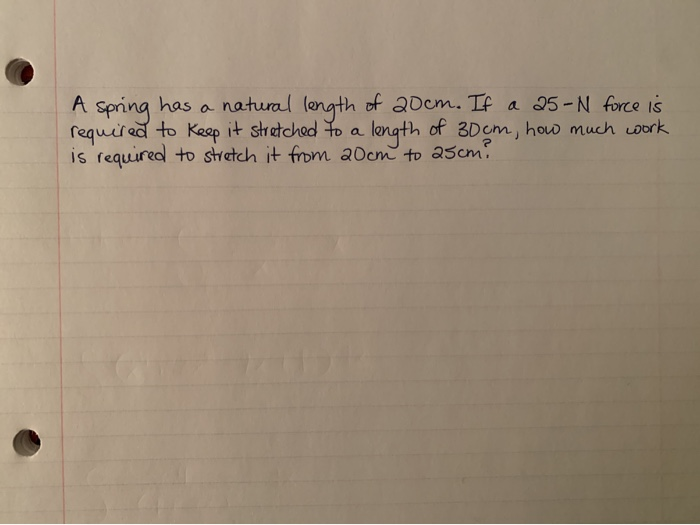 A spring has a natural length of 20cm. If a 25-N force is
required to keep it stretched to a length of 30cm, how much work
is required to stretch it from 20cm to 25cm?